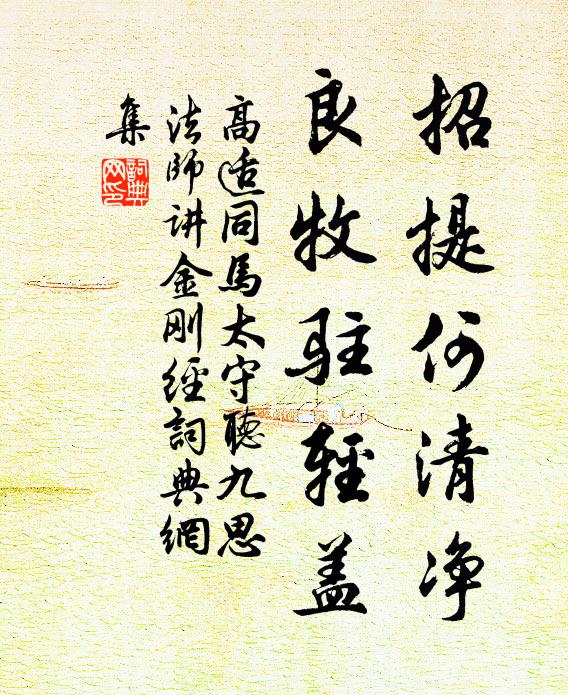 招提何清净
良牧驻轻盖
高适同馬太守聽九思
法師讲金刚经詞典網
集
詞典網印